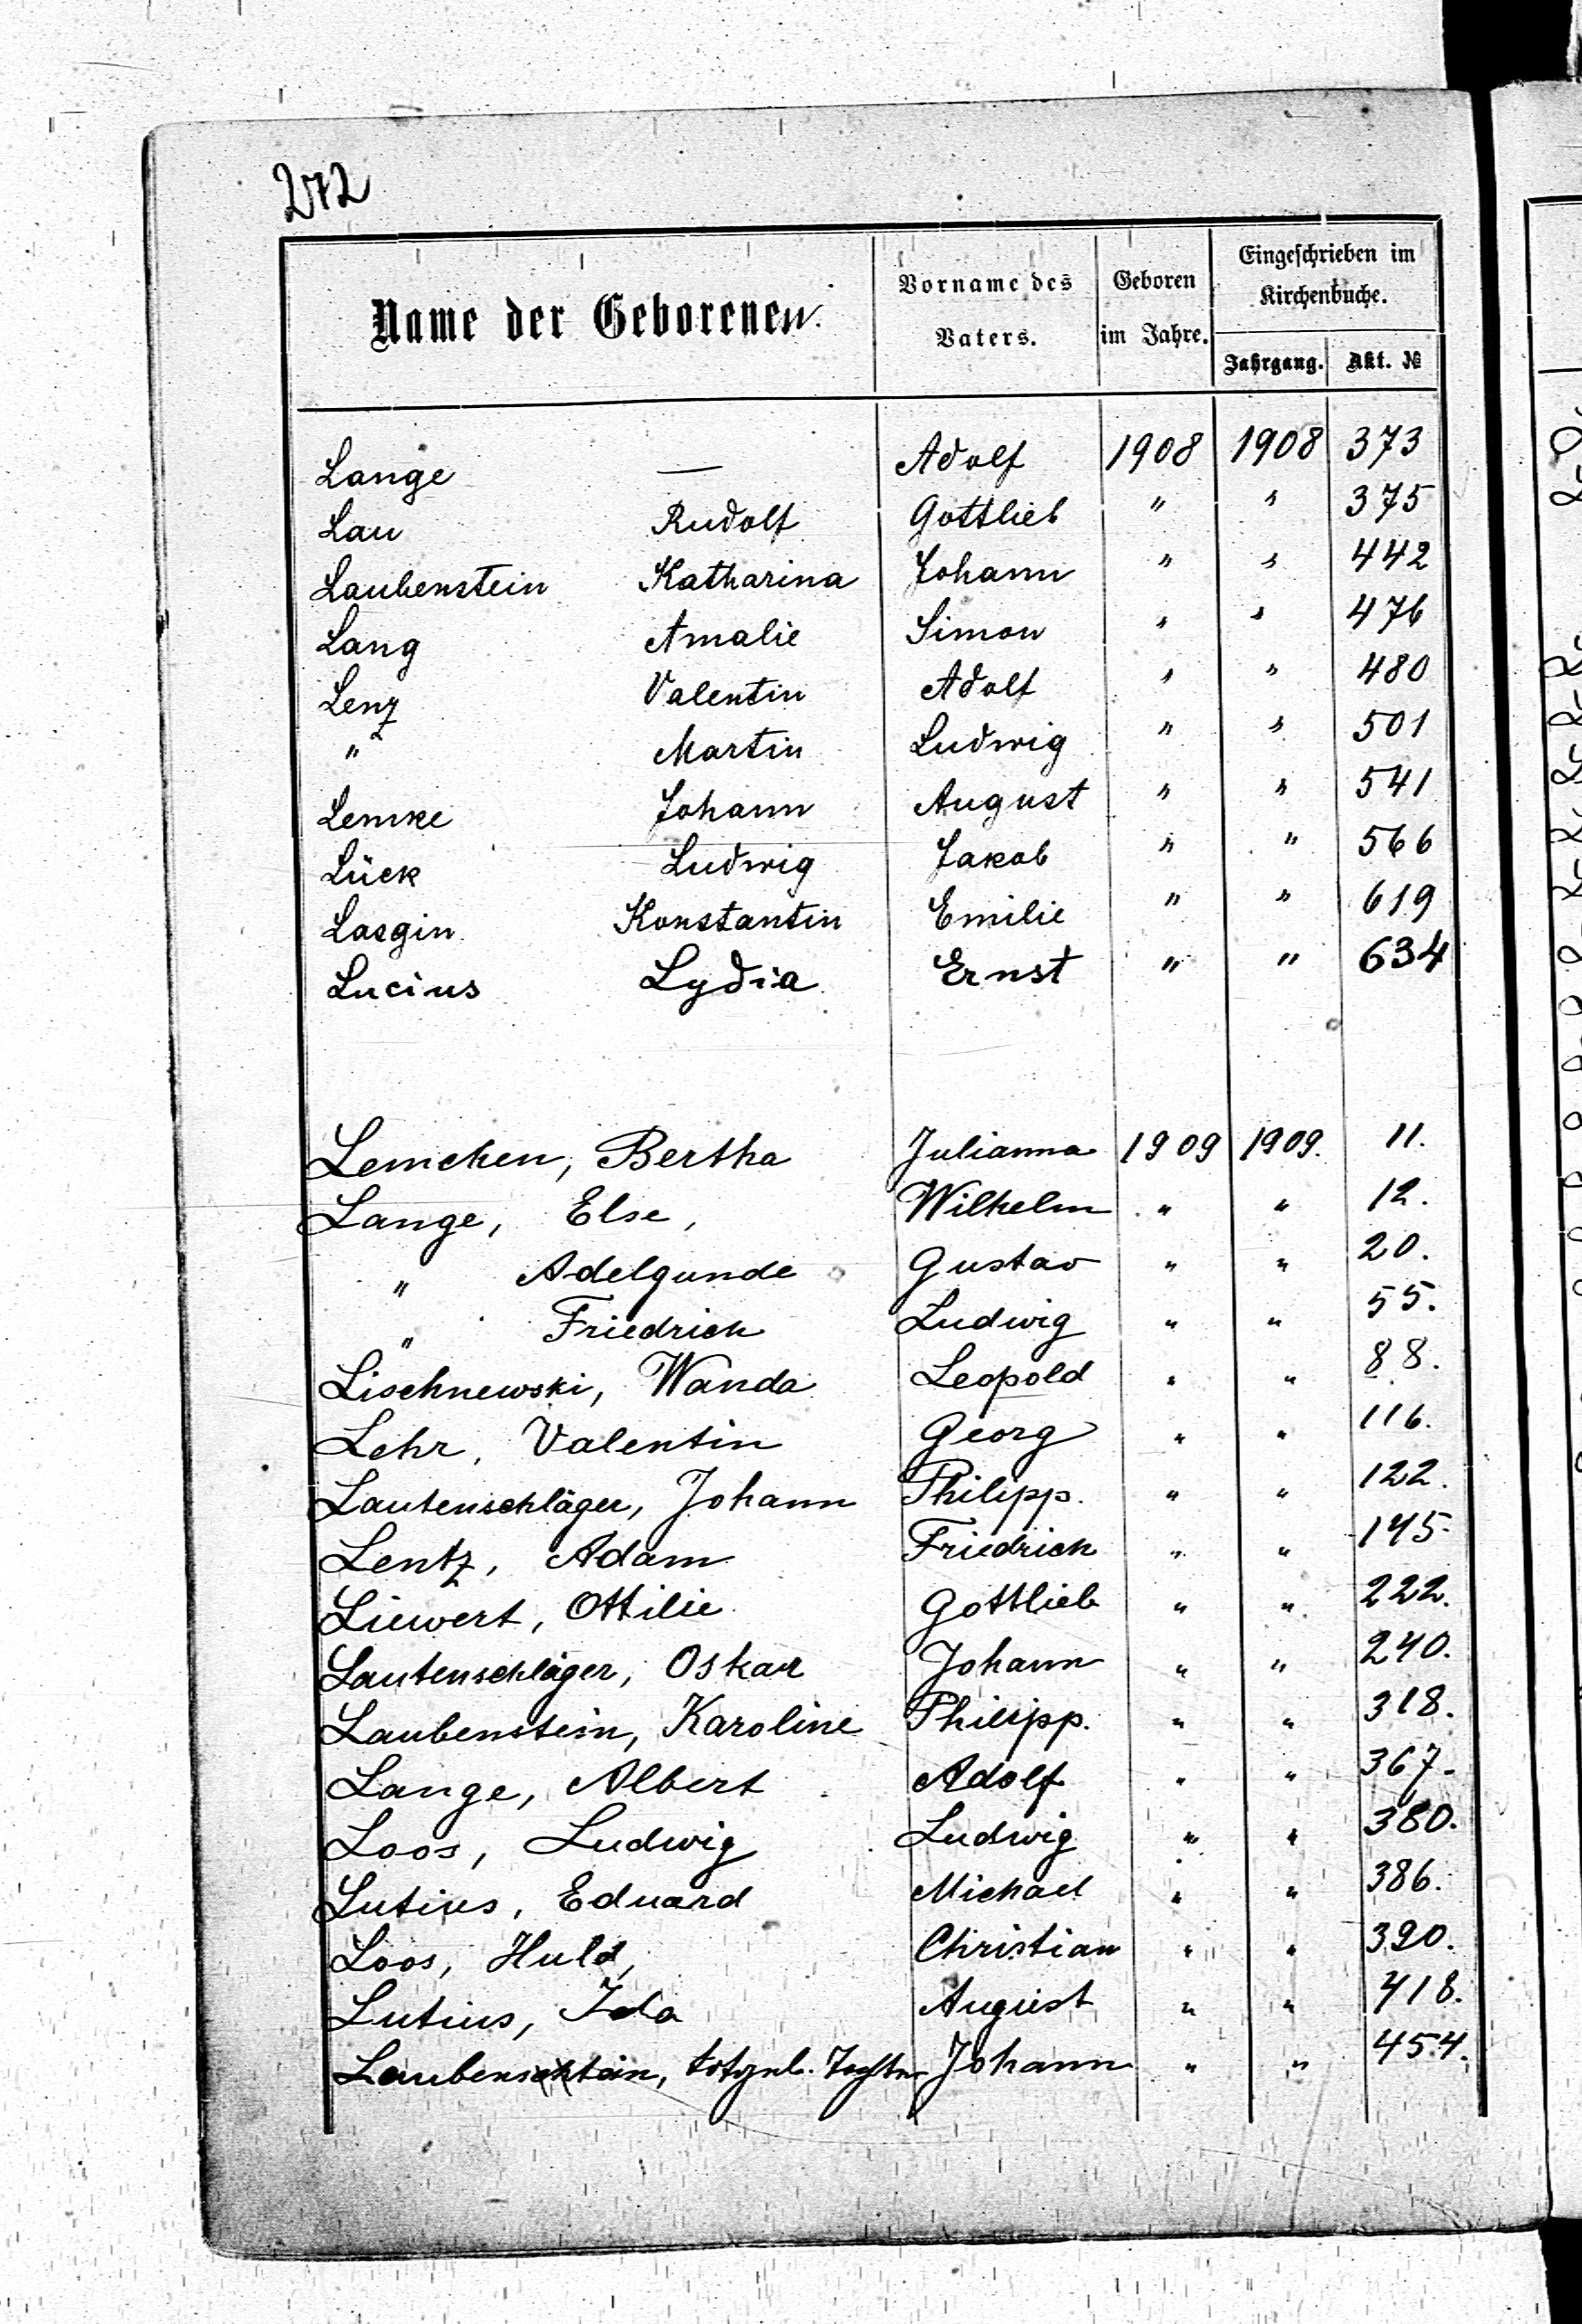 272
Name der Geborenen.
Vorname des Vaters.
Geboren im Jahre.
Eingeschrieben im Kirchenbuche.
Jahrgang. Akt. №
Lange — Adolf 1908 1908 373
Lau Rudolf Gottlieb " " 375
Laubenstein Katharina Johann " " 442
Lang Amalie Simon " " 476
Lenz Valentin Adolf " " 480
" Martin Ludwig " " 501
Lemke Johann August " " 541
Lück Ludwig Jakob " " 566
Lasgin Konstantin Emilie " " 619
Lucius Lydia Ernst " " 634
Lemchen, Bertha Julianna 1909 1909. 11.
Lange, Else, Wilhelm " " 12.
" Adelgunde Gustav " " 20.
" Friedrich Ludwig " " 55.
Lischnewski, Wanda Leopold " " 88.
Lehr, Valentin Georg " " 116.
Lautenschläger, Johann Philipp. " " 122.
Lentz, Adam Friedrich " " 145.
Liewert, Ottilie Gottlieb " " 222.
Lautenschläger, Oskar Johann " " 240.
Laubenstein, Karoline Philipp. " " 318.
Lange, Albert Adolf " " 367.
Loos, Ludwig Ludwig " " 380.
Lutius, Eduard Michael " " 386.
Loos, Huld, Christian " " 390.
Lutius, Ida August " " 418.
Laubenstein, totgeb. Tochter Johann " " 454.